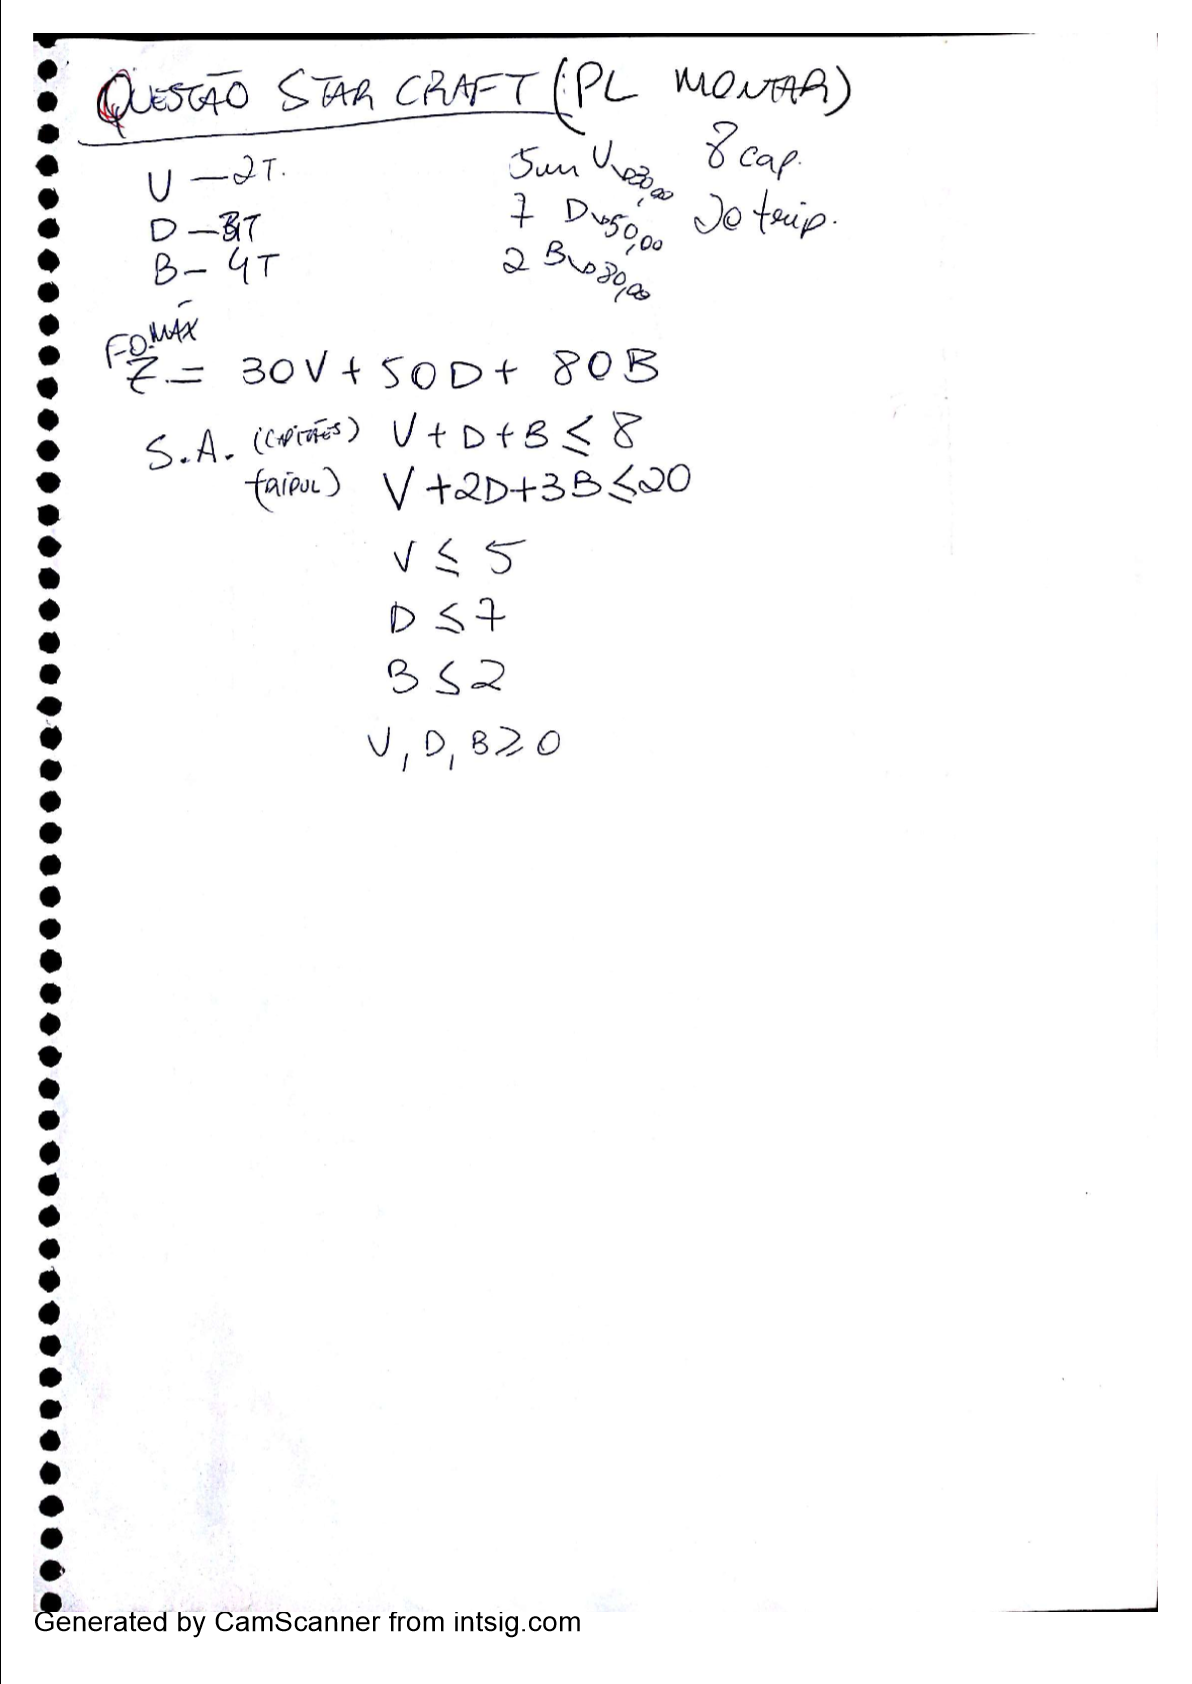 QUESTÃO STAR CRAFT (PL MONTAR)
V — 2T. 5un V↳30,00 8 cap.
D — 3T 7 D↳50,00 20 trip.
B — 4T 2 B↳80,00
F.O. MÁX
Z = 30V + 50D + 80B
S.A. (CAPITÃES) V + D + B ≤ 8
TRIPUL) V + 2D + 3B ≤ 20
V ≤ 5
D ≤ 7
B ≤ 2
V, D, B ≥ 0
Generated by CamScanner from intsig.com